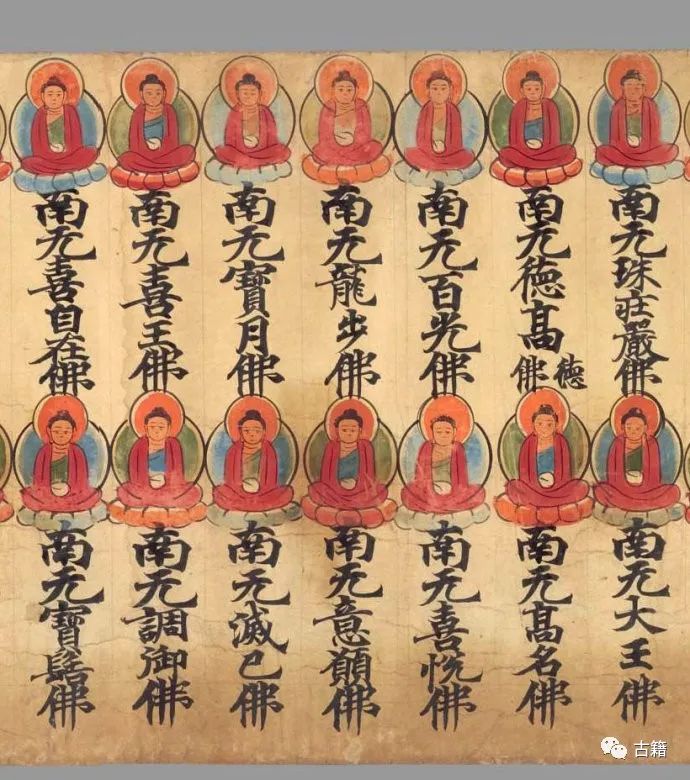 南无珠莊嚴佛
南无德髙德佛
南无百光佛
南无龍步佛
南无寶月佛
南无喜王佛
南无喜自在佛
南无大王佛
南无髙名佛
南无喜悅佛
南无意願佛
南无滅已佛
南无調御佛
南无寶髻佛
古籍